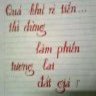 Quá khứ rẻ tiền...
thì đừng
làm phiền
tương lai
đắt giá !